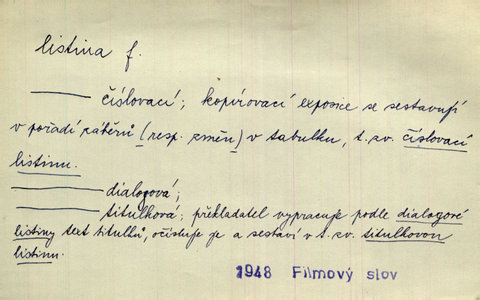 listina f.
——— číslovací; kopírovací exposice se sestavují
v pořádí záběrů (resp. změn) v tabulku, t. zv. číslovací
listinu.
——— dialogová;
——— titulková; překladatel vypracuje podle dialogové
listiny text titulků, očísluje je a sestaví v t. zv. titulkovou
listinu.
1948 Filmový slov